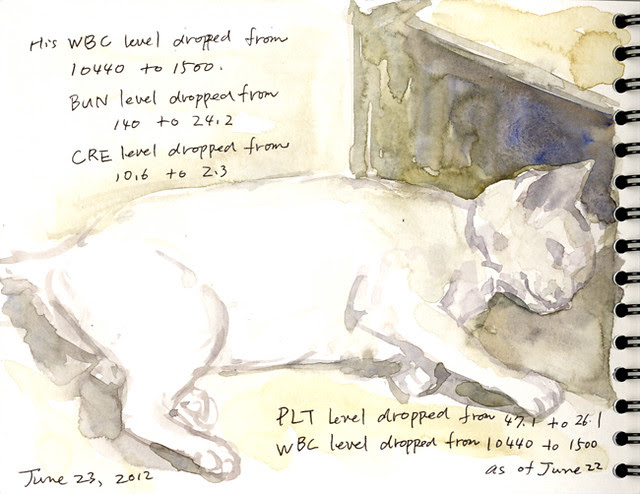 His WBC level dropped from
10440 to 1500.
BUN level dropped from
140 to 24.2
CRE level dropped from
10.6 to 2.3
PLT level dropped from 47.1 to 26.1
WBC level dropped from 10440 to 1500
as of June 22
June 23, 2012